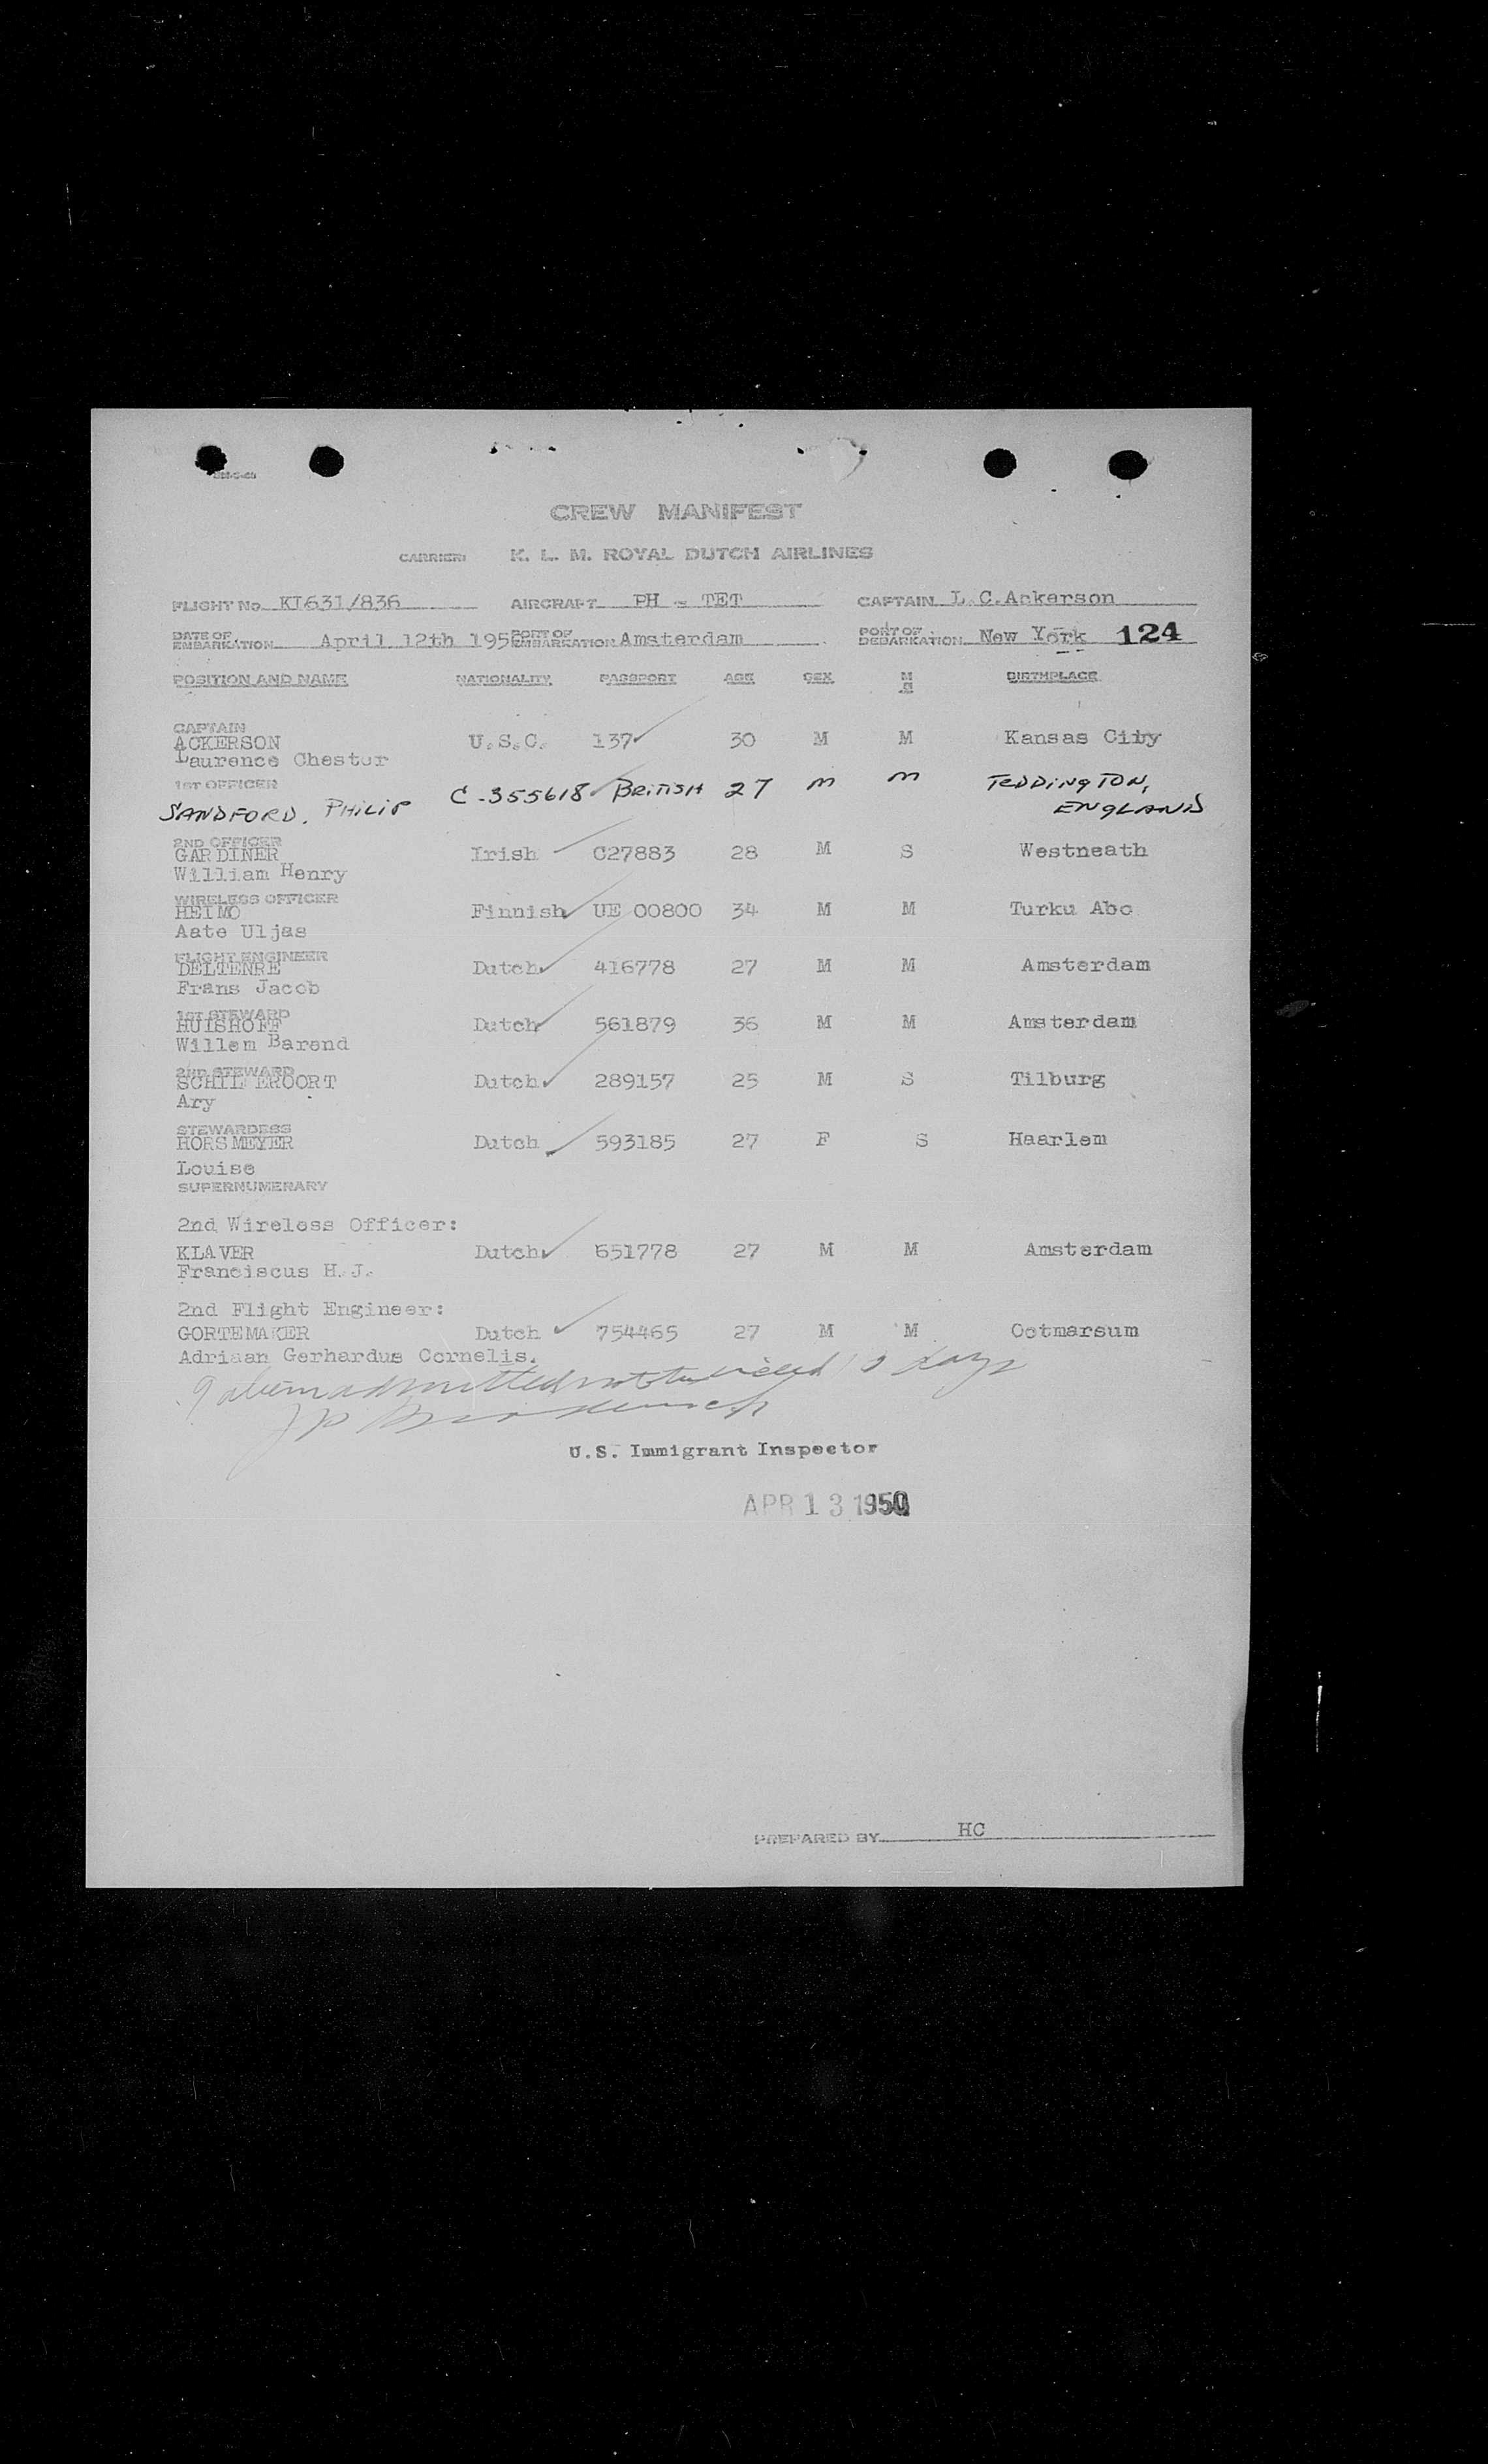 CREW MANIFEST
CARRIER: K. L. M. ROYAL DUTCH AIRLINES
FLIGHT No. KL631/836 AIRCRAFT PH - TET CAPTAIN L.C.Ackerson
DATE OF EMBARKATION April 12th 195 PORT OF EMBARKATION Amsterdam PORT OF DEBARKATION New York 124
POSITION AND NAME NATIONALITY PASSPORT AGE SEX M S BIRTHPLACE
CAPTAIN
ACKERSON U.S.C. 137 30 M M Kansas City
Laurence Chester
1ST OFFICER
SANDFORD, PHILIP C-355618 BRITISH 27 M M TEDDINGTON,
ENGLAND
2ND OFFICER
GARDINER Irish C27883 28 M S Westneath
William Henry
WIRELESS OFFICER
HEIMO Finnish UE 00800 34 M M Turku Abo
Aate Uljas
FLIGHT ENGINEER
DELTENRE Dutch 416778 27 M M Amsterdam
Frans Jacob
1ST STEWARD
HUISHOFF Dutch 561879 36 M M Amsterdam
Willem Barend
2ND STEWARD
SCHILFEROORT Dutch 289157 25 M S Tilburg
Ary
STEWARDESS
HORSMEYER Dutch 593185 27 F S Haarlem
Louise
SUPERNUMERARY
2nd Wireless Officer:
KLAVER Dutch 651778 27 M M Amsterdam
Franciscus H.J.
2nd Flight Engineer:
GORTEMAKER Dutch 754465 27 M M Ootmarsum
Adriaan Gerhardus Cornelis.
9 aliens admitted not to exceed days
U.S. Immigrant Inspector
APR 13 1950
PREPARED BY HC